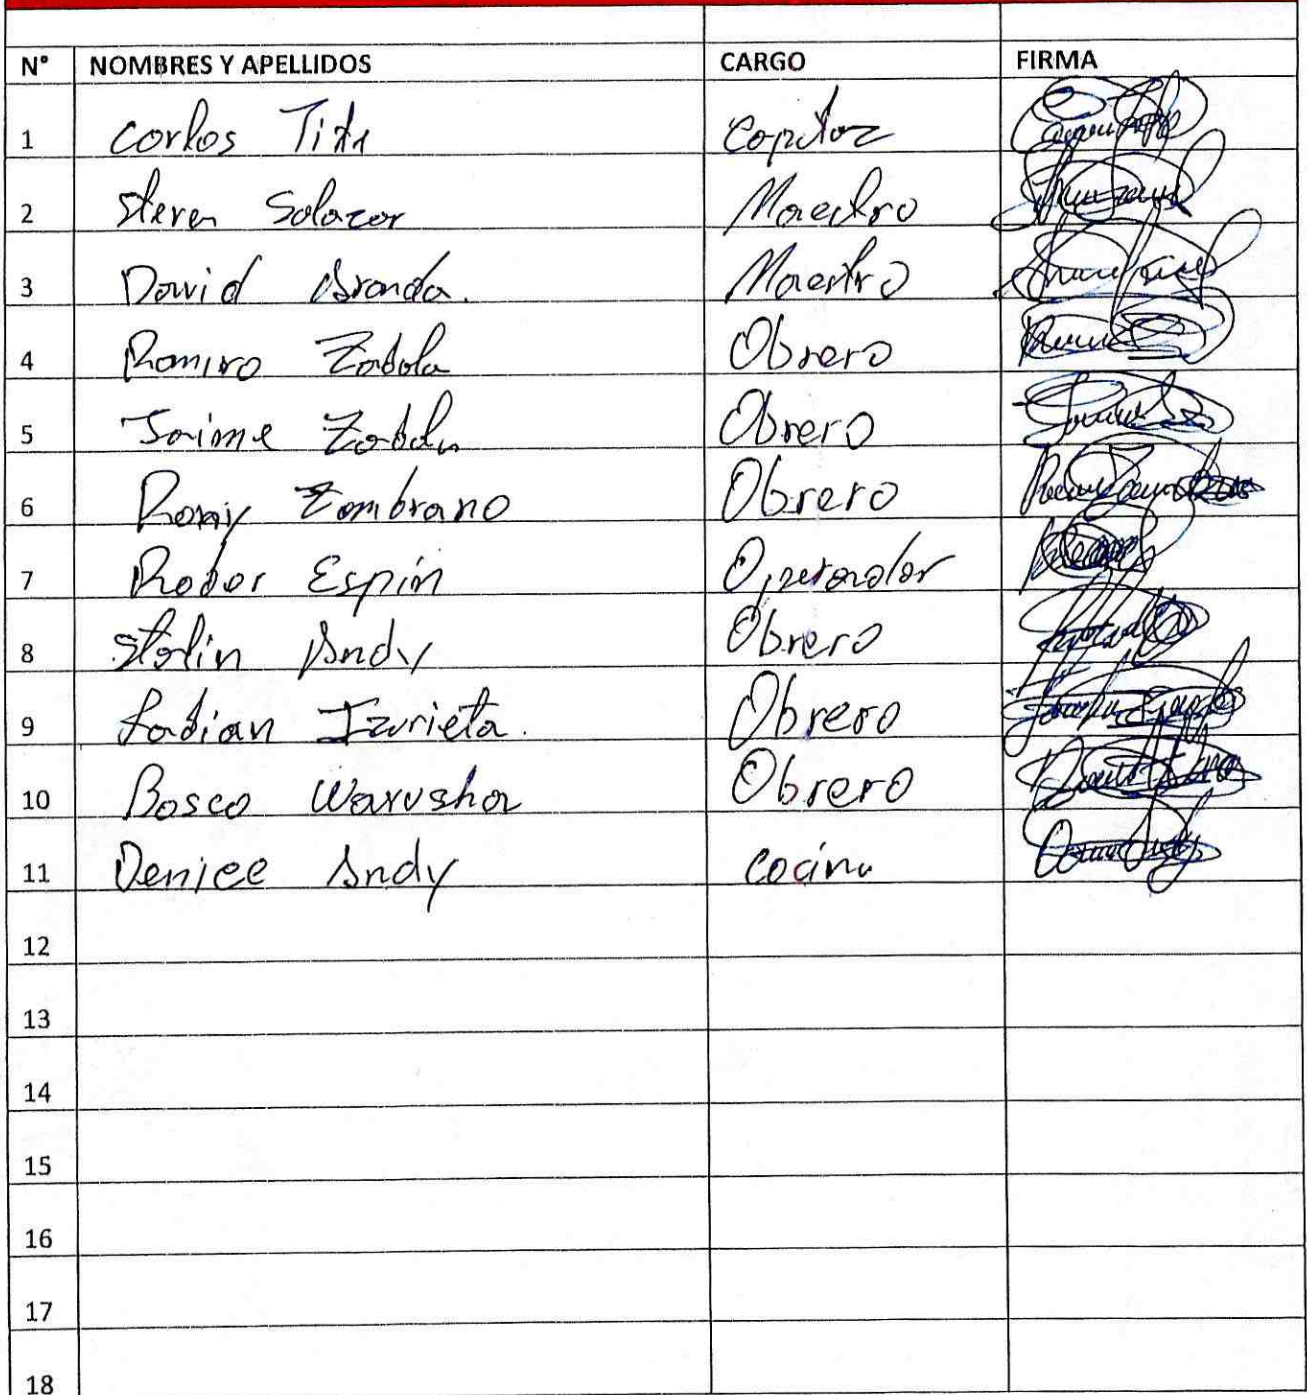 N° NOMBRES Y APELLIDOS CARGO FIRMA
1 Carlos Tite Capataz
2 Steven Salazar Maestro
3 David Aranda. Maestro
4 Ramiro Zabala Obrero
5 Jaime Zabala Obrero
6 Rony Zambrano Obrero
7 Espín Operador
8 Stalin Andy Obrero
9 Fabian Izurieta. Obrero
10 Bosco Warusha Obrero
11 Denice Andy cocina
12
13
14
15
16
17
18